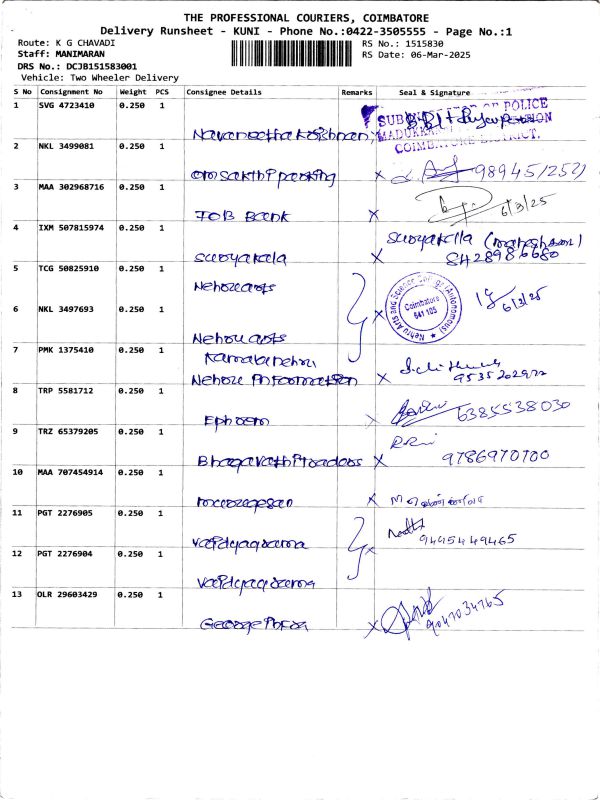 THE PROFESSIONAL COURIERS, COIMBATORE
Delivery Runsheet - KUNI - Phone No.:0422-3505555 - Page No.:1
Route: K G CHAVADI
RS No.: 1515830
Staff: MANIMARAN
RS Date: 06-Mar-2025
DRS No.: DCJB151583001
Vehicle: Two Wheeler Delivery
S No Consignment No Weight PCS Consignee Details Remarks Seal & Signature
1 SVG 4723410 0.250 1
Navaneethakrishnan
SUB OF POLICE
COIMBATORE DISTRICT.
2 NKL 3499081 0.250 1
omsakthi packing x
3 MAA 302968716 0.250 1
IOB Bank x 6/3/25
4 IXM 507815974 0.250 1
suryakala x
5 TCG 50825910 0.250 1
Nehru arts
Nehru Arts and Science College (Autonomous)
Coimbatore
641 105
6/3/25
6 NKL 3497693 0.250 1
Nehru arts
7 PMK 1375410 0.250 1
Kamala nehru
Nehru Information x
8 TRP 5581712 0.250 1
Ephrem x 6385538030
9 TRZ 65379205 0.250 1
Bhagavathi Traders x 9786970700
10 MAA 707454914 0.250 1
murugesan x
11 PGT 2276905 0.250 1
vaidyagrama x 9495449465
12 PGT 2276904 0.250 1
vaidyagrama
13 OLR 29603429 0.250 1
George x